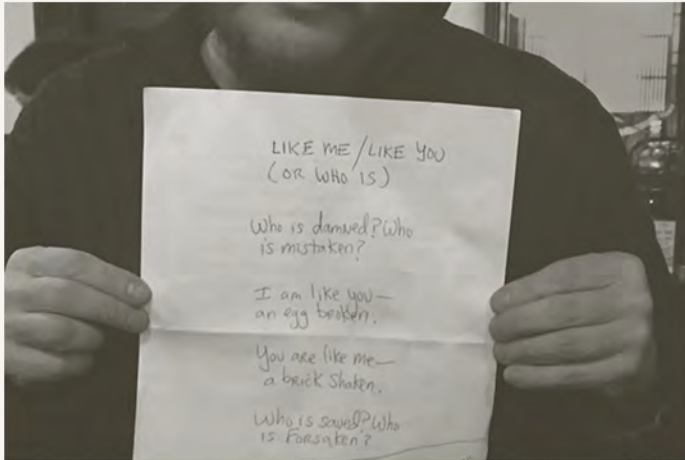 LIKE ME/LIKE YOU
(OR WHO IS)
Who is damned? Who
is mistaken?
I am like you—
an egg broken.
You are like me—
a brick shaken.
Who is saved? Who
is Forsaken?